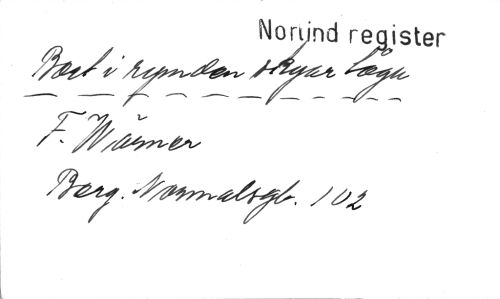 Norrjnd register
Bort i rymden skyar tåga
F. Wärner
Berg. Normalsgb. 102